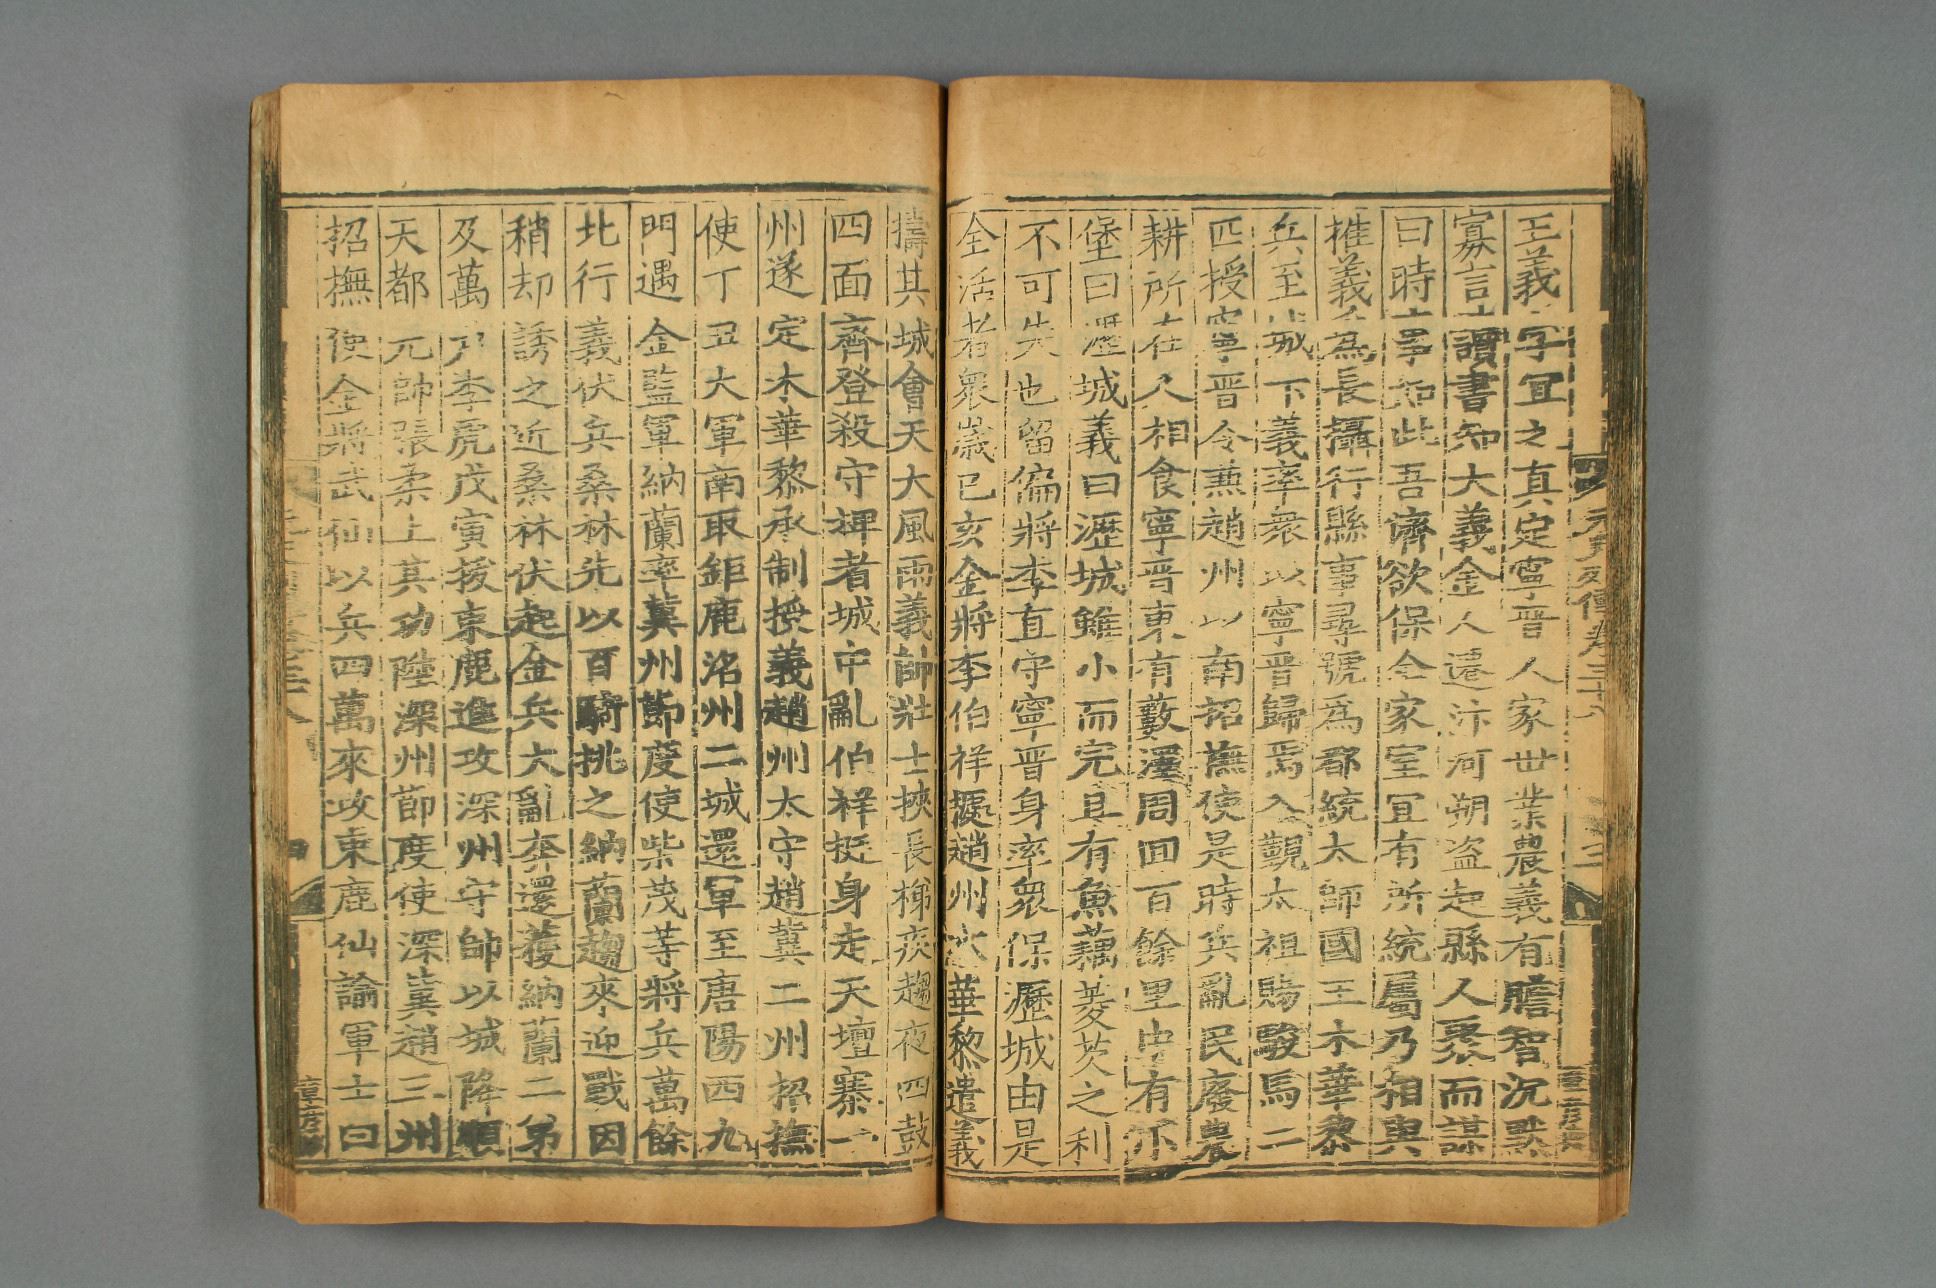 王義字宜之真定寧晉人家世業農義有膽智沉默
寡言讀書知大義金人遷汴河朔盗起縣人聚而謀
曰時事如此吾濟欲保全家室宜有所統屬乃相與
推義為長攝行縣事尋號為都統太師國王木華黎
兵至城下義率衆以寧晉歸焉入覲太祖賜駿馬二
匹授寧晉令兼趙州以南招撫使是時兵亂民廢農
耕所在人相食寧晉東有藪澤周回百餘里中有小
堡曰瀝城義曰瀝城雖小而完且有魚藕菱芡之利
不可失也留偏將李直守寧晉身率衆保瀝城由是
全活者衆歲己亥金將李伯祥據趙州木華黎遣義
擣其城會天大風雨義帥壯士挾長梯疾趨夜四鼓
四面齊登殺守埤者城中亂伯祥挺身走天壇寨一
州遂定木華黎承制授義趙州太守趙冀二州招撫
使丁丑大軍南取鉅鹿洺州二城還軍至唐陽西九
門遇金監軍納蘭率冀州節度使柴茂等將兵萬餘
北行義伏兵桑林先以百騎挑之納蘭趨來迎戰因
稍却誘之近桑林伏起金兵大亂奔還獲納蘭二弟
及萬戶李虎戊寅拔束鹿進攻深州守帥以城降順
天都元帥張柔上其功陞深州節度使深冀趙三州
招撫使金將武仙以兵四萬來攻束鹿仙諭軍士曰